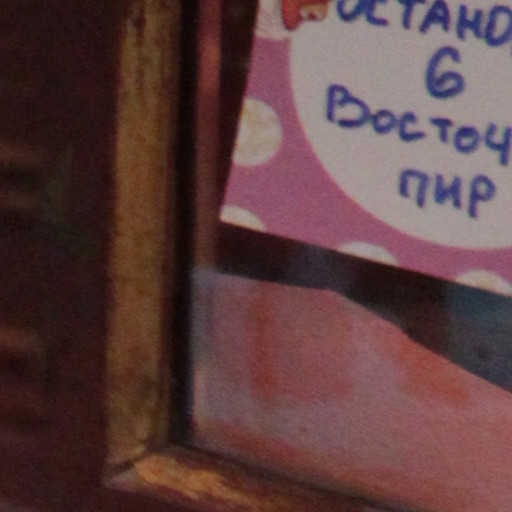 ОСТАНО
6
Восточ
пир